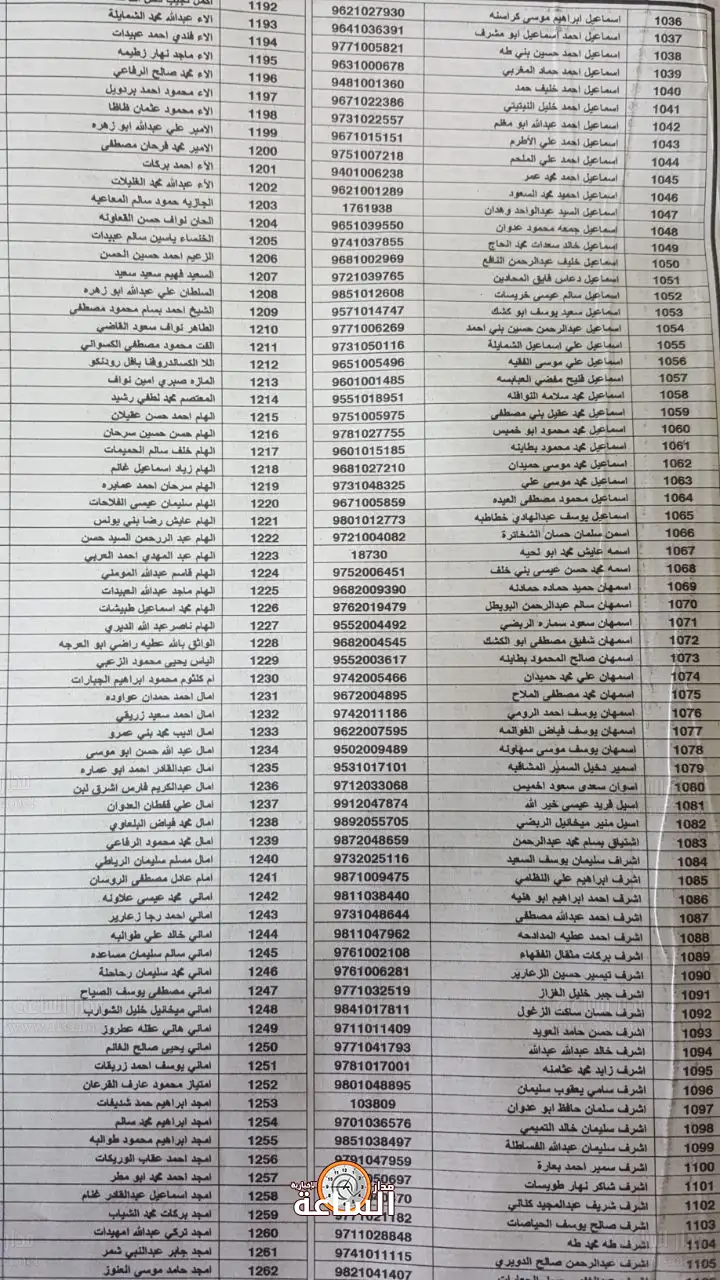 1036 اسماعيل ابراهيم موسى كراسنه 9621027930
1037 اسماعيل احمد اسماعيل ابو مشرف 9641036391
1038 اسماعيل احمد حسين بني طه 9771005821
1039 اسماعيل احمد حماد المغربي 9631000678
1040 اسماعيل احمد خليف حمد 9481001360
1041 اسماعيل احمد خليل النيتيتي 9671022386
1042 اسماعيل احمد عبدالله ابو مغلم 9731022557
1043 اسماعيل احمد علي الأطرم 9671015151
1044 اسماعيل احمد علي الملحم 9751007218
1045 اسماعيل احمد محمد عمر 9401006238
1046 اسماعيل احميد محمد السعود 9621001289
1047 اسماعيل السيد عبدالواحد وهدان 1761938
1048 اسماعيل جمعه محمود عدوان 9651039550
1049 اسماعيل خالد سعدات محمد الحاج 9741037855
1050 اسماعيل خليف عبدالرحمن النافع 9681002969
1051 اسماعيل دعاس فايق المحادين 9721039765
1052 اسماعيل سالم عيسى خريسات 9851012608
1053 اسماعيل سعيد يوسف ابو كشك 9571014747
1054 اسماعيل عبدالرحمن حسين بني احمد 9771006269
1055 اسماعيل علي اسماعيل الشمايلة 9731050116
1056 اسماعيل علي موسى الفقيه 9651005496
1057 اسماعيل فليح مفضي العبابسه 9601001485
1058 اسماعيل محمد سلامه النوافله 9551018951
1059 اسماعيل محمد عقيل بني مصطفى 9751005975
1060 اسماعيل محمد محمود ابو خميس 9781027755
1061 اسماعيل محمد محمود بطاينه 9601015185
1062 اسماعيل محمد موسى حميدان 9681027210
1063 اسماعيل محمد موسى علي 9731048325
1064 اسماعيل محمود مصطفى العبده 9671005859
1065 اسماعيل يوسف عبدالهادي خطاطبه 9801012773
1066 اسمن سلمان حسان الشخاترة 9721004082
1067 اسمه عايش محمد ابو لحيه 18730
1068 اسمه محمد حسن عيسى بني خلف 9752006451
1069 اسمهان حميد حماده حمادنه 9682009390
1070 اسمهان سالم عبدالرحمن البويطل 9762019479
1071 اسمهان سعود سماره الربضي 9552004492
1072 اسمهان شفيق مصطفى ابو الكشك 9682004545
1073 اسمهان صالح المحمود بطاينه 9552003617
1074 اسمهان علي محمد حميدان 9742005466
1075 اسمهان محمد مصطفى الملاح 9672004895
1076 اسمهان يوسف احمد الرومي 9742011186
1077 اسمهان يوسف فياض الغوانمه 9622007595
1078 اسمهان يوسف موسى سهاونه 9502009489
1079 اسمير دخيل السمير المشاقبه 9531017101
1080 اسوان سعدي سعود اخميس 9712033068
1081 اسيل فريد عيسى خير الله 9912047874
1082 اسيل منير ميخائيل الربضي 9892055705
1083 اشتياق بسام محمد عبدالرحمن 9872048659
1084 اشراف سليمان يوسف السعيد 9732025116
1085 اشرف ابراهيم علي النظامي 9871009475
1086 اشرف احمد ابراهيم ابو هنيه 9811038440
1087 اشرف احمد عبدالله مصطفى 9731048644
1088 اشرف احمد عطيه المدادحه 9811047962
1089 اشرف بركات مثقال الفقهاء 9761002108
1090 اشرف تيسير حسين الزعارير 9761006281
1091 اشرف جبر خليل الغزاز 9771032519
1092 اشرف حسان ساكت الزغول 9841017811
1093 اشرف حسن حامد العويد 9711011409
1094 اشرف خالد عبدالله عبدالله 9771041793
1095 اشرف زايد محمد عثامنه 9781017001
1096 اشرف سامي يعقوب سليمان 9801048895
1097 اشرف سلمان حافظ ابو عدوان 103809
1098 اشرف سليمان خالد التميمي 9701036576
1099 اشرف سليمان عبدالله القساطلة 9851038497
1100 اشرف سمير احمد بعارة 9791047959
1101 اشرف شاكر نهار طويسات
1102 اشرف شريف عبدالمجيد كنالي
1103 اشرف صالح يوسف الحياصات 9771021182
1104 اشرف طه محمد طه 9711028848
1105 اشرف عبدالرحمن صالح الدويري 9741011115
9821041407
1192
1193 الاء عبدالله محمد الشمايلة
1194 الاء فلدي احمد عبيدات
1195 الاء ماجد نهار زطيمه
1196 الاء محمد صالح الرفاعي
1197 الاء محمود احمد بردويل
1198 الاء محمود عثمان ظاظا
1199 الامير علي عبدالله ابو زهره
1200 الامير محمد فرحان مصطفى
1201 الآء احمد بركات
1202 الآء عبدالله محمد الغليلات
1203 الجازيه حمود سالم المعاعيه
1204 الحان نواف حسن القعاونه
1205 الخنساء ياسين سالم عبيدات
1206 الزعيم احمد حسين الحسن
1207 السعيد فهيم سعيد سعيد
1208 السلطان علي عبدالله ابو زهره
1209 الشيخ احمد بسام محمود مصطفى
1210 الطاهر نواف سعود القاضي
1211 الفت محمود مصطفى الكسواني
1212 اللا الكسالدروفنا بافل رودنكو
1213 المازه صبري امين نواف
1214 المعتصم محمد لطفي رشيد
1215 الهام احمد حسن عقيلان
1216 الهام حسن حسين سرحان
1217 الهام خلف سالم الحميمات
1218 الهام زياد اسماعيل غانم
1219 الهام سرحان احمد عمايره
1220 الهام سليمان عيسى الفلاحات
1221 الهام عايش رضا بني يونس
1222 الهام عبد الررحمن السيد حسن
1223 الهام عبد المهدي احمد العربي
1224 الهام قاسم عبدالله المومني
1225 الهام ماجد عبدالله العبيدات
1226 الهام محمد اسماعيل طبيشات
1227 الهام ناصر عبد الله الديري
1228 الواثق بالله عطيه راضي ابو العرجه
1229 الياس يحيى محمود الزعبي
1230 ام كلثوم محمود ابراهيم الجبارات
1231 امال احمد حمدان عواوده
1232 امال احمد سعيد زريقي
1233 امال اديب محمد بني عمرو
1234 امال عبد الله حسن ابو موسى
1235 امال عبدالقادر احمد ابو عماره
1236 امال عبدالكريم فارس اشرق لبن
1237 امال علي قفطان العدوان
1238 امال محمد فياض البلعاوي
1239 امال محمد محمود الرفاعي
1240 امال مسلم سليمان الرياطي
1241 امام عادل مصطفى الروسان
1242 اماني محمد عيسى علاونه
1243 اماني احمد رجا زعارير
1244 اماني خالد علي طوالبه
1245 اماني سالم سليمان مساعده
1246 اماني محمد سليمان رحاحلة
1247 اماني مصطفى يوسف الصياح
1248 اماني ميخائيل خليل الشوارب
1249 اماني هاني عقله عطروز
1250 اماني يحيى صالح الغانم
1251 اماني يوسف احمد زريقات
1252 امتياز محمود عارف القرعان
1253 امجد ابراهيم حمد شديفات
1254 امجد ابراهيم محمد سالم
1255 امجد ابراهيم محمود طوالبه
1256 امجد احمد عقاب الوريكات
1257 امجد احمد محمد ابو مطر
1258 امجد اسماعيل عبدالقادر غنام
1259 امجد بركات محمد الشياب
1260 امجد تركي عبدالله امهيدات
1261 امجد جابر عبدالنبي شمر
1262 امجد حامد موسى العنوز
مدار
الاخبارية
الساعة